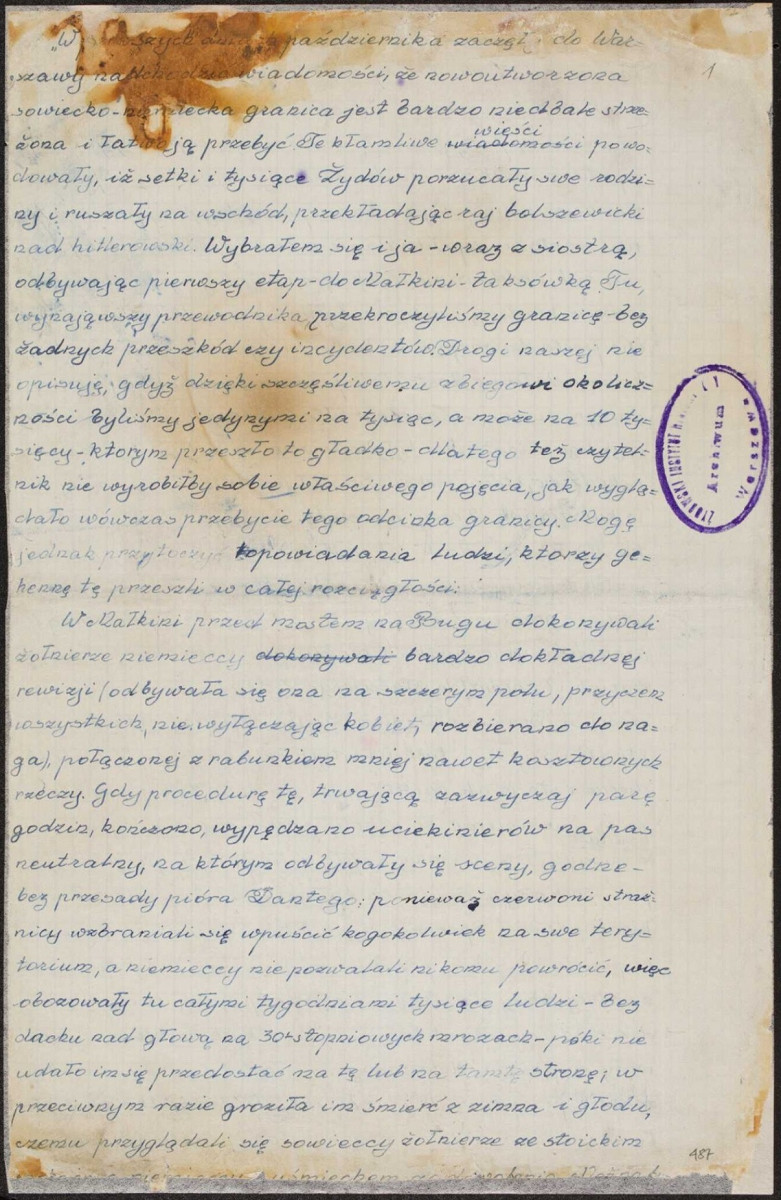 "W pierwszych dniach października zaczęły do War-
szawy nadchodzić wiadomości, że nowoutworzona
sowiecko-niemiecka granica jest bardzo niedbale strze-
żona i łatwo ją przebyć. Te kłamliwe wiadomości wieści powo-
dowały, iż setki i tysiące Żydów porzucały swe rodzi-
ny i ruszały na wschód, przekładając raj bolszewicki
nad hitlerowski. Wybrałem się i ja - wraz z siostrą,
odbywając pierwszy etap - do Małkini - taksówką. Tu,
wynająwszy przewodnika, przekroczyliśmy granicę - bez
żadnych przeszkód czy incydentów. Drogi naszej nie
opisuję, gdyż dzięki szczęśliwemu zbiegowi okolicz-
ności byliśmy jedynymi na tysiąc, a może na 10 ty-
sięcy - którym przeszło to gładko - dlatego też czytel-
nik nie wyrobiłby sobie właściwego pojęcia, jak wyglą-
dało wówczas przebycie tego odcinka granicy. Mogę
jednak przytoczyć opowiadania ludzi, którzy ge-
hennę tę przeszli w całej rozciągłości:
W Małkini przed mostem na Bugu dokonywali
żołnierze niemieccy dokonywali bardzo dokładnej
rewizji (odbywała się ona na szczerym polu, przyczem
wszystkich, nie wyłączając kobiet, rozbierano do na-
ga), połączonej z rabunkiem mniej nawet kosztownych
rzeczy. Gdy procedurę tę, trwającą zazwyczaj parę
godzin, kończono, wypędzano uciekinierów na pas
neutralny, na którym odbywały się sceny, godne -
bez przesady pióra Dantego; ponieważ czerwoni straż-
nicy wzbraniali się wpuścić kogokolwiek na swe tery-
torium, a niemieccy nie pozwalali nikomu powrócić, więc
obozowały tu całymi tygodniami tysiące ludzi - bez
dachu nad głową na 30-stopniowych mrozach - póki nie
udało im się przedostać na tę lub na tamtą stronę; w
przeciwnym razie groziła im śmierć z zimna i głodu,
czemu przyglądali się sowieccy żołnierze ze stoickim
1
ŻYDOWSKI INSTYTUT
Archiwum
Warszawa
487